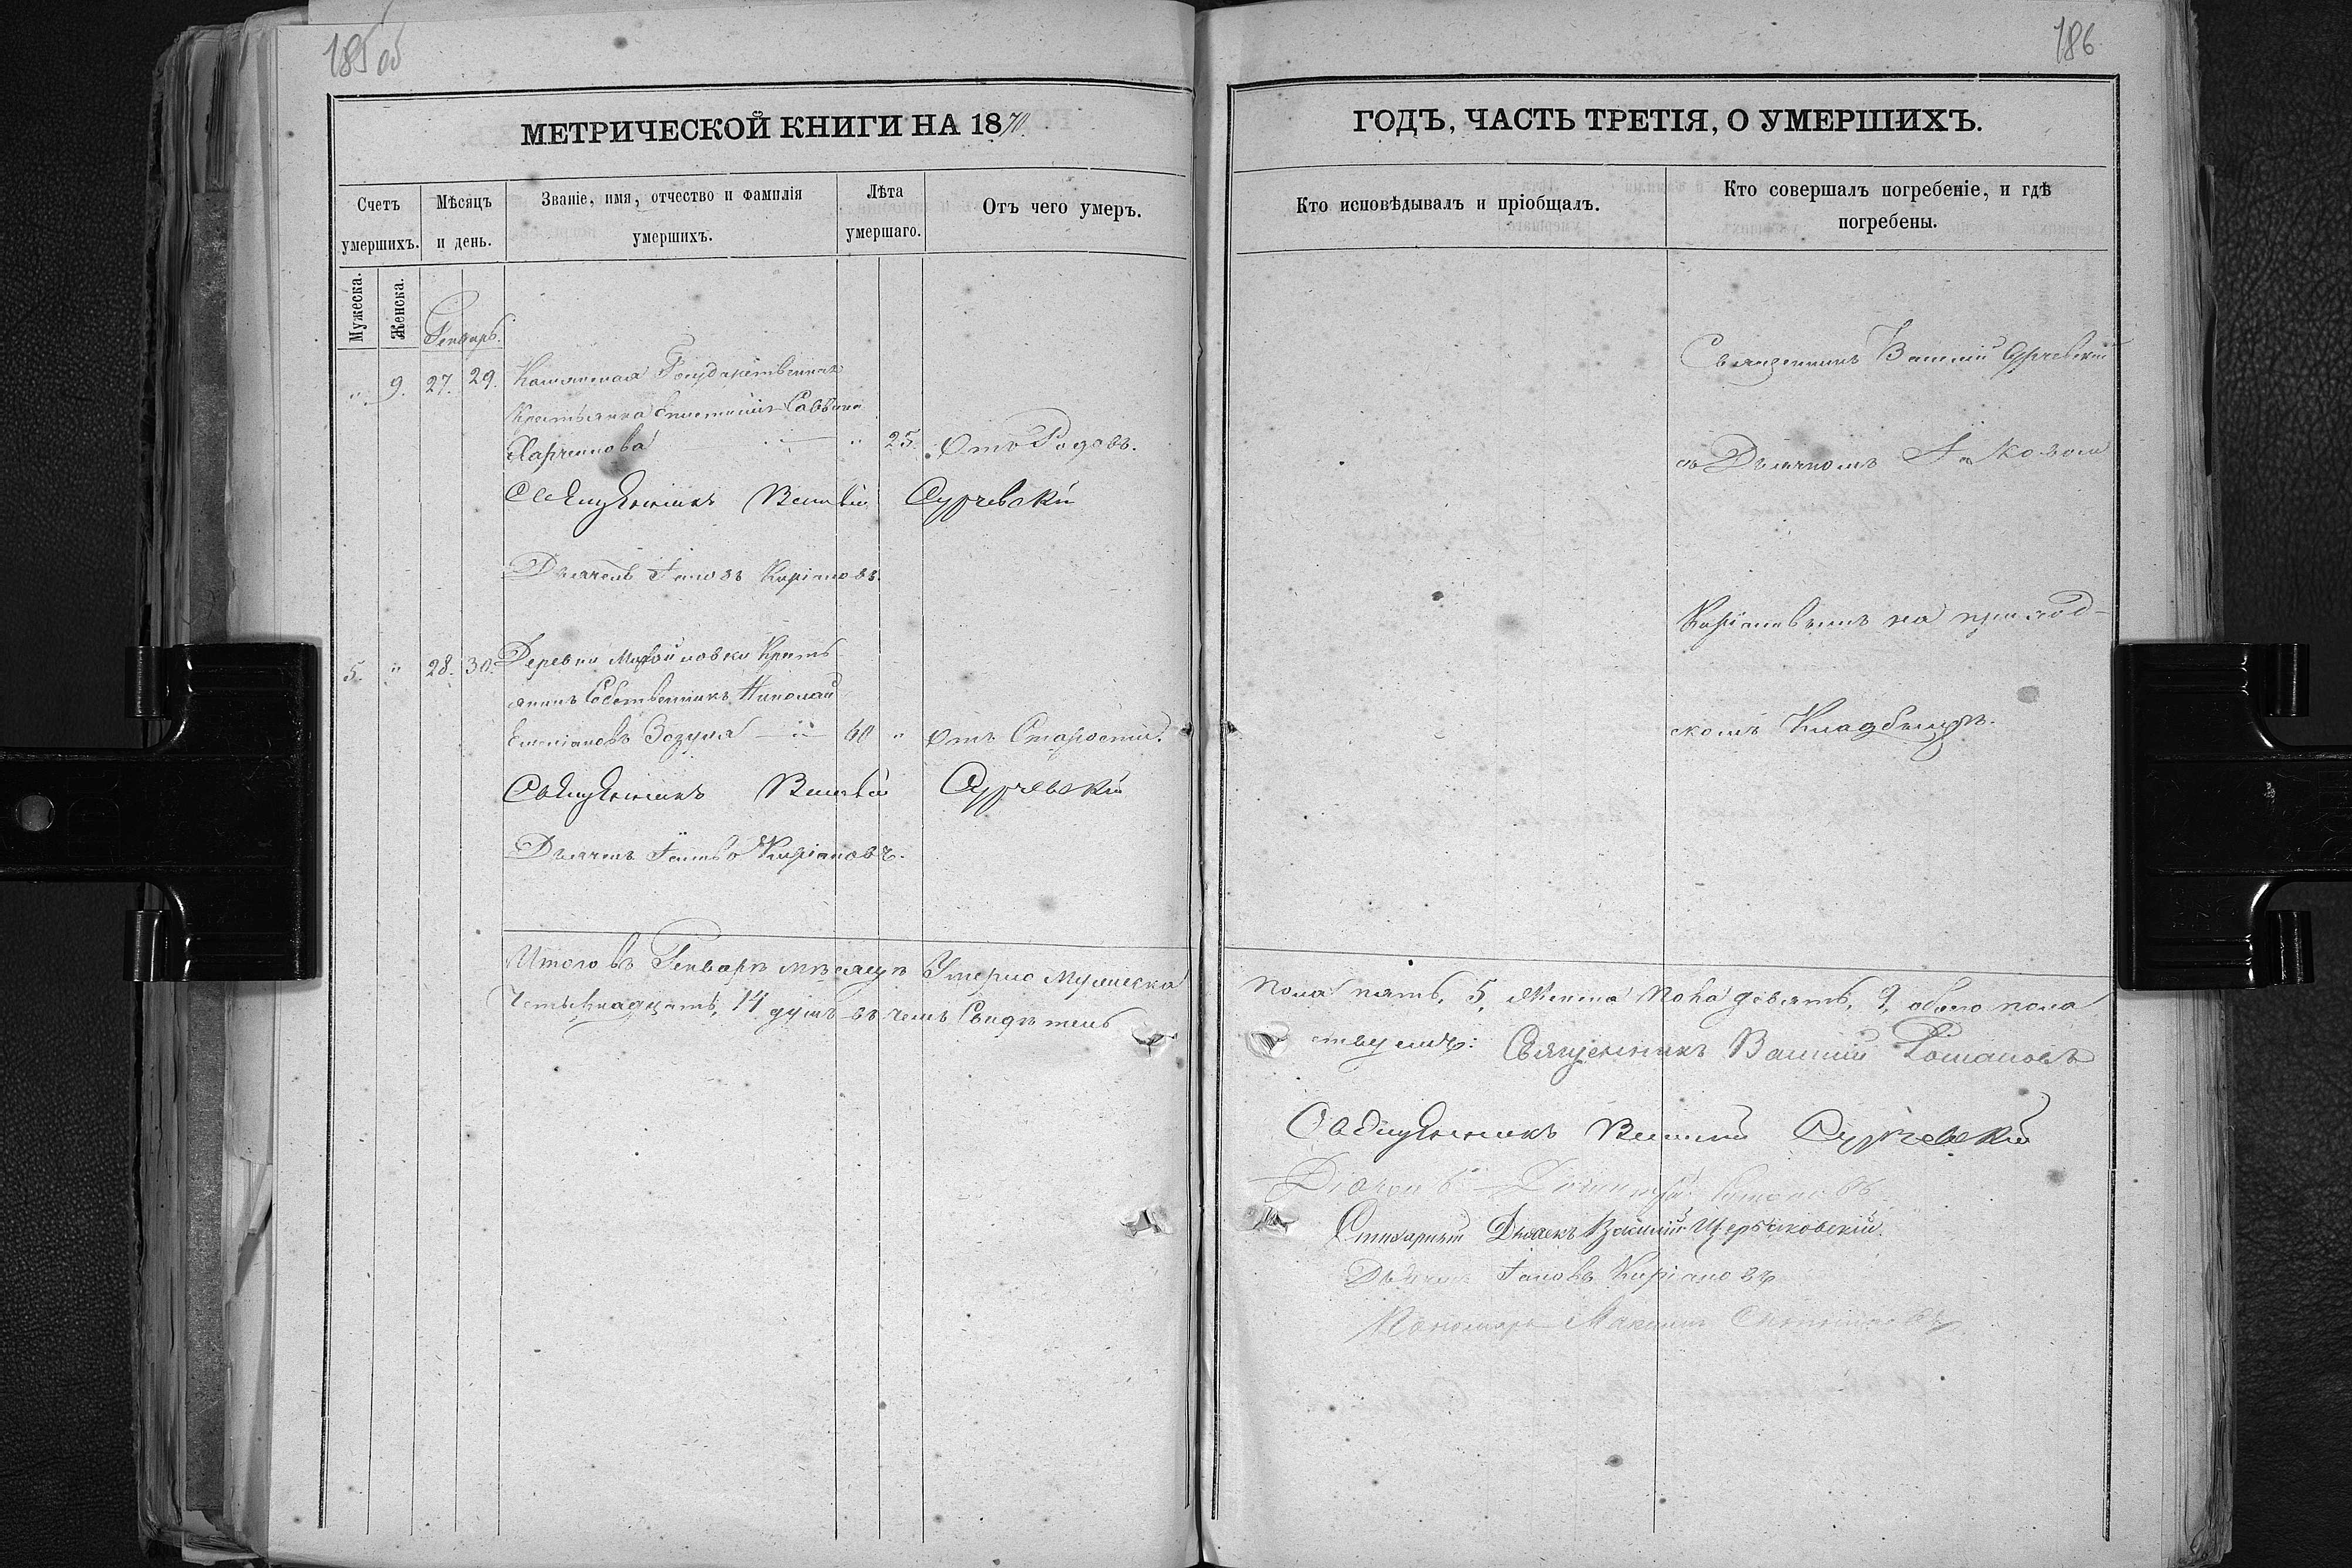 185 об
МЕТРИЧЕСКОЙ КНИГИ НА 1870.
Счетъ умершихъ.
Мѣсяцъ и день.
Званіе, имя, отчество и фамилія умершихъ.
Лѣта умершаго.
Отъ чего умеръ.
Мужеска.
Женска.
Генварь.
". 9. 27. 29. Государственная
Крестьянка Савина
Харченкова " 25. Отъ Родовъ.
Священникъ Василій Сурчевскій
Дьячекъ Іаковъ Киріановъ.
5. " 28. 30. Деревни Кресть-
янинъ Собственникъ Николай
Емеліановъ Зозуля 60 " Отъ Старости.
Священникъ Василій Сурчевскій
Дьячекъ Іаковъ Киріановъ.
Итого въ Генварѣ мѣсяцѣ Умерло мужеска
Четырнадцать, 14 душъ въ чемъ Свидѣтель
186
ГОДЪ, ЧАСТЬ ТРЕТІЯ, О УМЕРШИХЪ.
Кто исповѣдывалъ и пріобщалъ.
Кто совершалъ погребеніе, и гдѣ погребены.
Священникъ Василій Сурчевскій
съ Дьячкомъ Іаковомъ
Киріановымъ на приход-
скомъ Кладбищѣ.
пола пять, 5, Женска пола девять, 9, обоего пола
ствуемъ: Священникъ Василій Романовъ
Священникъ Василій Сурчевскій
Діаконъ
Стихарный Дьячекъ Василій Щербаковскій.
Дьячекъ Іаковъ Киріановъ
Пономарь Максимъ